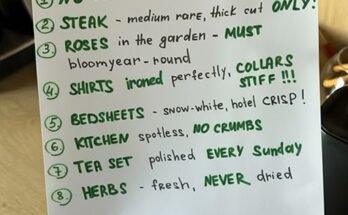 ② STEAK - medium rare, thick cut ONLY!
③ ROSES in the garden - MUST
bloomyear-round
④ SHIRTS ironed perfectly, COLLARS
STIFF !!!
⑤ BEDSHEETS - snow-white, hotel CRISP!
⑥ KITCHEN spotless, NO CRUMBS
⑦ TEA SET polished EVERY Sunday
⑧ HERBS - fresh, NEVER dried